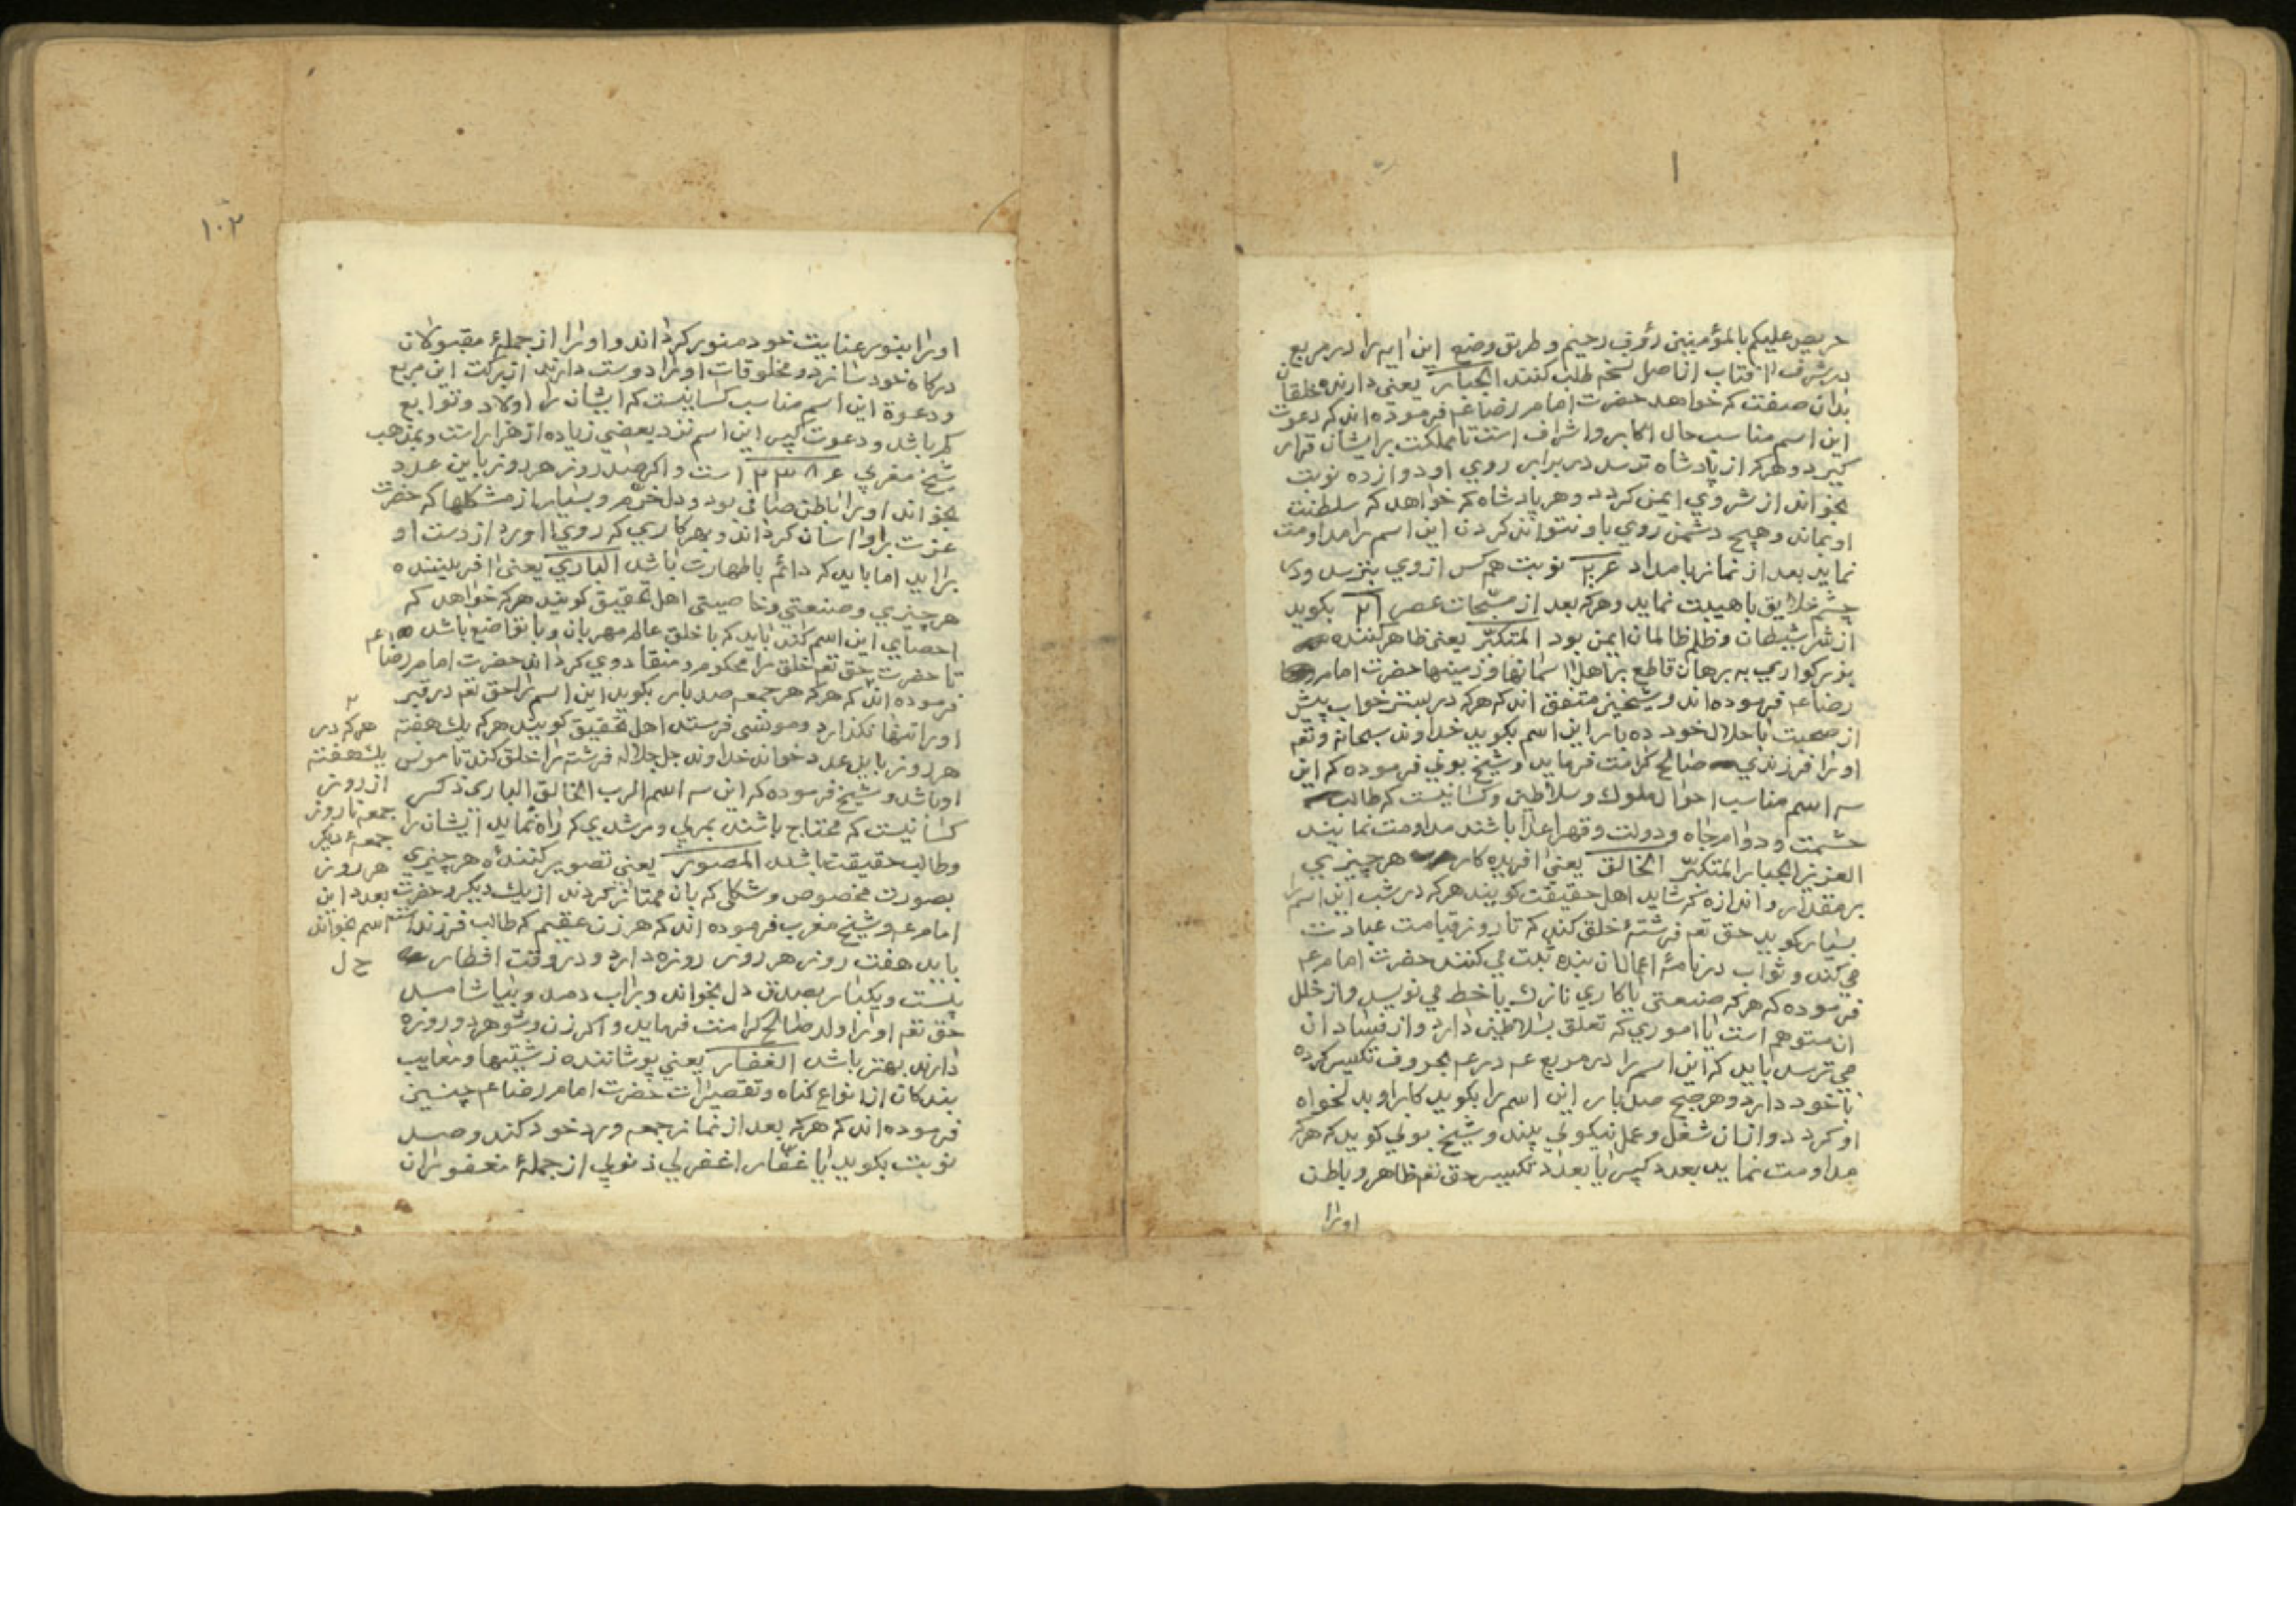 حریص علیکم بالمؤمنین رؤف رحیم و طریق وضع این ایه را در مربع
در شرف افتاب از اصل نسخه طلب کنند الجبار یعنی دارنده خلقان
بدان صفت که خواهد حضرت امام رضا عم فرموده اند که دعوت
این اسم مناسب حال اکابر و اشراف است تا مملکت بر ایشان قرار
کیرد و هرکه از پادشاه ترسد در برابر روی او دوازده نوبت
بخواند از شر وی ایمن کردد و هر پادشاه که خواهد که سلطنت
او بماند و هیچ دشمن روی باو نتواند کردن این اسم را مداومت
نماید بعد از نماز بامداد نوبت هم کس از وی بترسد و در
چشم خلایق با هیبت نماید و هرکه بعد از مسبحات عصر ۲۱ بکوید
از شر شیطان و ظلم ظالمان ایمن بود المتکبر یعنی ظاهر کننده
بزرکواری به برهان قاطع بر اهل اسمانها و زمینها حضرت امام
رضا عم فرموده اند و شیخین متفق اند که هرکه در بستر خواب پیش
از صحبت با حلال خود ده بار این اسم بکوید خداوند سبحانه و تعم
او را فرزندی صالح کرامت فرماید و شیخ بونی فرموده که این
سه اسم مناسب احوال ملوک و سلاطین و کسانیست که طالب
حشمت و دوام جاه و دولت و قهر اعدا باشند مداومت نمایند
العزیز الجبار المتکبر الخالق یعنی افریده کار هر چیزی
بر مقدار و اندازه که شاید اهل حقیقت کویند هرکه در شب این اسم را
بسیار کوید حق تعم فرشتهٔ خلق کند که تا روز قیامت عبادت
می کند و ثواب در نامهٔ اعمال ان بنده ثبت می کنند حضرت امام عم
فرموده که هرکه صنعتی یا کاری نازک یا خط می نویسد و از خلل
ان متوهم است یا اموری که تعلق بسلاطین دارد و از فساد ان
می ترسد باید که این اسم را در مربع عم در عم بحروف تکسیر کرده
با خود دارد و هر صبح صد بار این اسم را بکوید کار او بدلخواه
او کردد و از ان شغل و عمل نیکویی بیند و شیخ بونی کوید که هرکه
مداومت نماید بعدد کبیر یا بعدد تکسیر حق تعم ظاهر و باطن
او را
۱۰۲
او را بنور عنایت خود منور کرداند و او را از جملهٔ مقبولان
درکاه خود سازد و مخلوقات او را دوست دارند از برکت این مربع
و دعوة این اسم مناسب کسانیست که ایشان را اولاد و توابع
کم باشد و دعوت کبیر این اسم نزد بعضی زیاده از هزار است و بمذهب
شیخ مغربی است و اکر صد روز هر روز باین عدد
بخواند او را باطن صافی بود و دل خرم و بسیار از مشکلها که حضرت
عزت بر او اسان کرداند و بهر کاری که روی اورد از دست او
براید اما باید که دائم با طهارت باشد الباری یعنی افریننده
هر چیزی و صنعتی و خاصیتی اهل تحقیق کویند هرکه خواهد که
احصای این اسم کند باید که با خلق عالم مهربان و با تواضع باشد
تا حضرت حق تعم خلق را محکوم و منقاد وی کرداند حضرت امام رضا عم
فرموده اند که هرکه هر جمعه صد بار بکوید این اسم را حق تعم در قبر
او را تنها نکذارد و مونسی فرستد اهل تحقیق کویند هرکه یک هفته
هر روز باین عدد خواند خداوند جل جلاله فرشته را خلق کند تا مونس
او باشد و شیخ فرموده که این سه اسم الرب الخالق الباری ذکر
کسانیست که محتاج باشند بمربی و مرشدی که راه نماید ایشان را
و طالب حقیقت باشد المصور یعنی تصویر کنندهٔ هر چیزی
بصورت مخصوص و شکلی که بان ممتاز کردند از یک دیکر و حضرت
امام عم و شیخ مغرب فرموده اند که هر زن عقیم که طالب فرزند است
باید هفت روز هر روز روزه دارد و در وقت افطار
بیست و یکبار بصدق دل بخواند و بر اب دمد و بیاشامد
حق تعم او را ولد صالح کرامت فرماید و اکر زن و شوهر دو روزه
دارند بهتر باشد الغفار یعنی پوشاننده زشتیها و معایب
بندکان از انواع کناه و تقصیرات حضرت امام رضا عم چنین
فرموده اند که هرکه بعد از نماز جمعه ورد خود کند و صد
نوبت بکوید یا غفار اغفر لی ذنوبی از جملهٔ مغفوران
هرکه در
یک هفته
از روز
جمعه تا روز
جمعهٔ دیکر
هر روز
بعدد این
اسم بخواند
ح ل